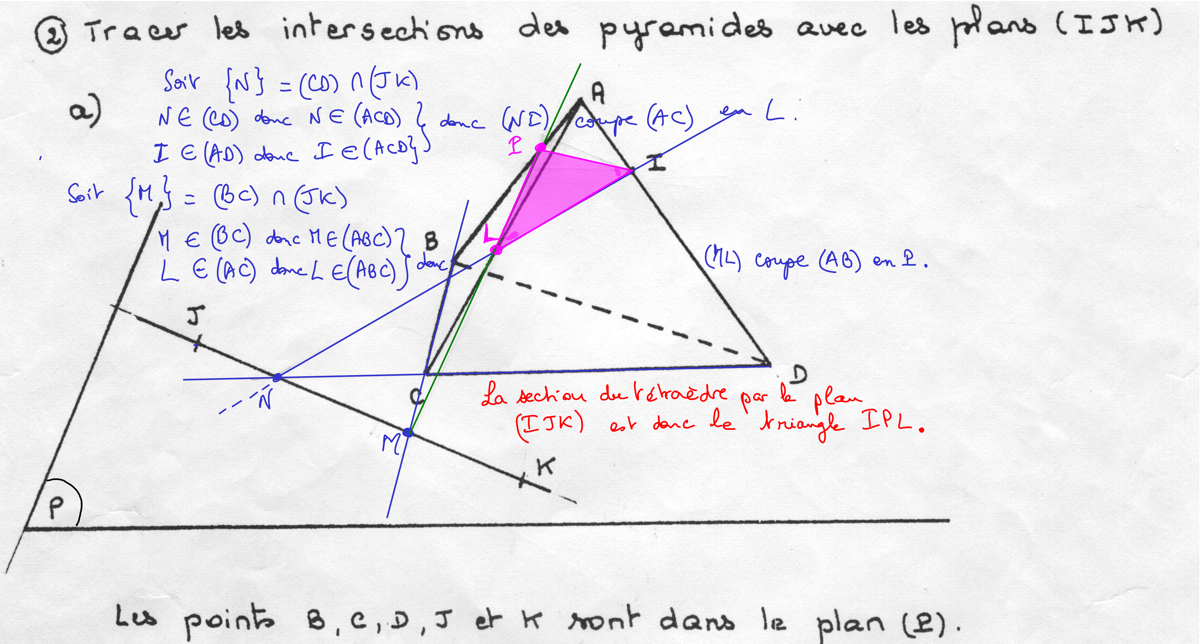 ② Tracer les intersections des pyramides avec les plans (IJK)
a)
Soit {N} = (CD) ∩ (JK)
N ∈ (CD) donc N ∈ (ACD) } donc (NI) coupe (AC) en L.
I ∈ (AD) donc I ∈ (ACD)
Soit {M} = (BC) ∩ (JK)
M ∈ (BC) donc M ∈ (ABC) } donc
L ∈ (AC) donc L ∈ (ABC)
(ML) coupe (AB) en P.
A
P
I
B
L
J
N
C
D
M
K
P
La section du tétraèdre par le plan
(IJK) est donc le triangle IPL.
Les points B, C, D, J et K sont dans le plan (P).